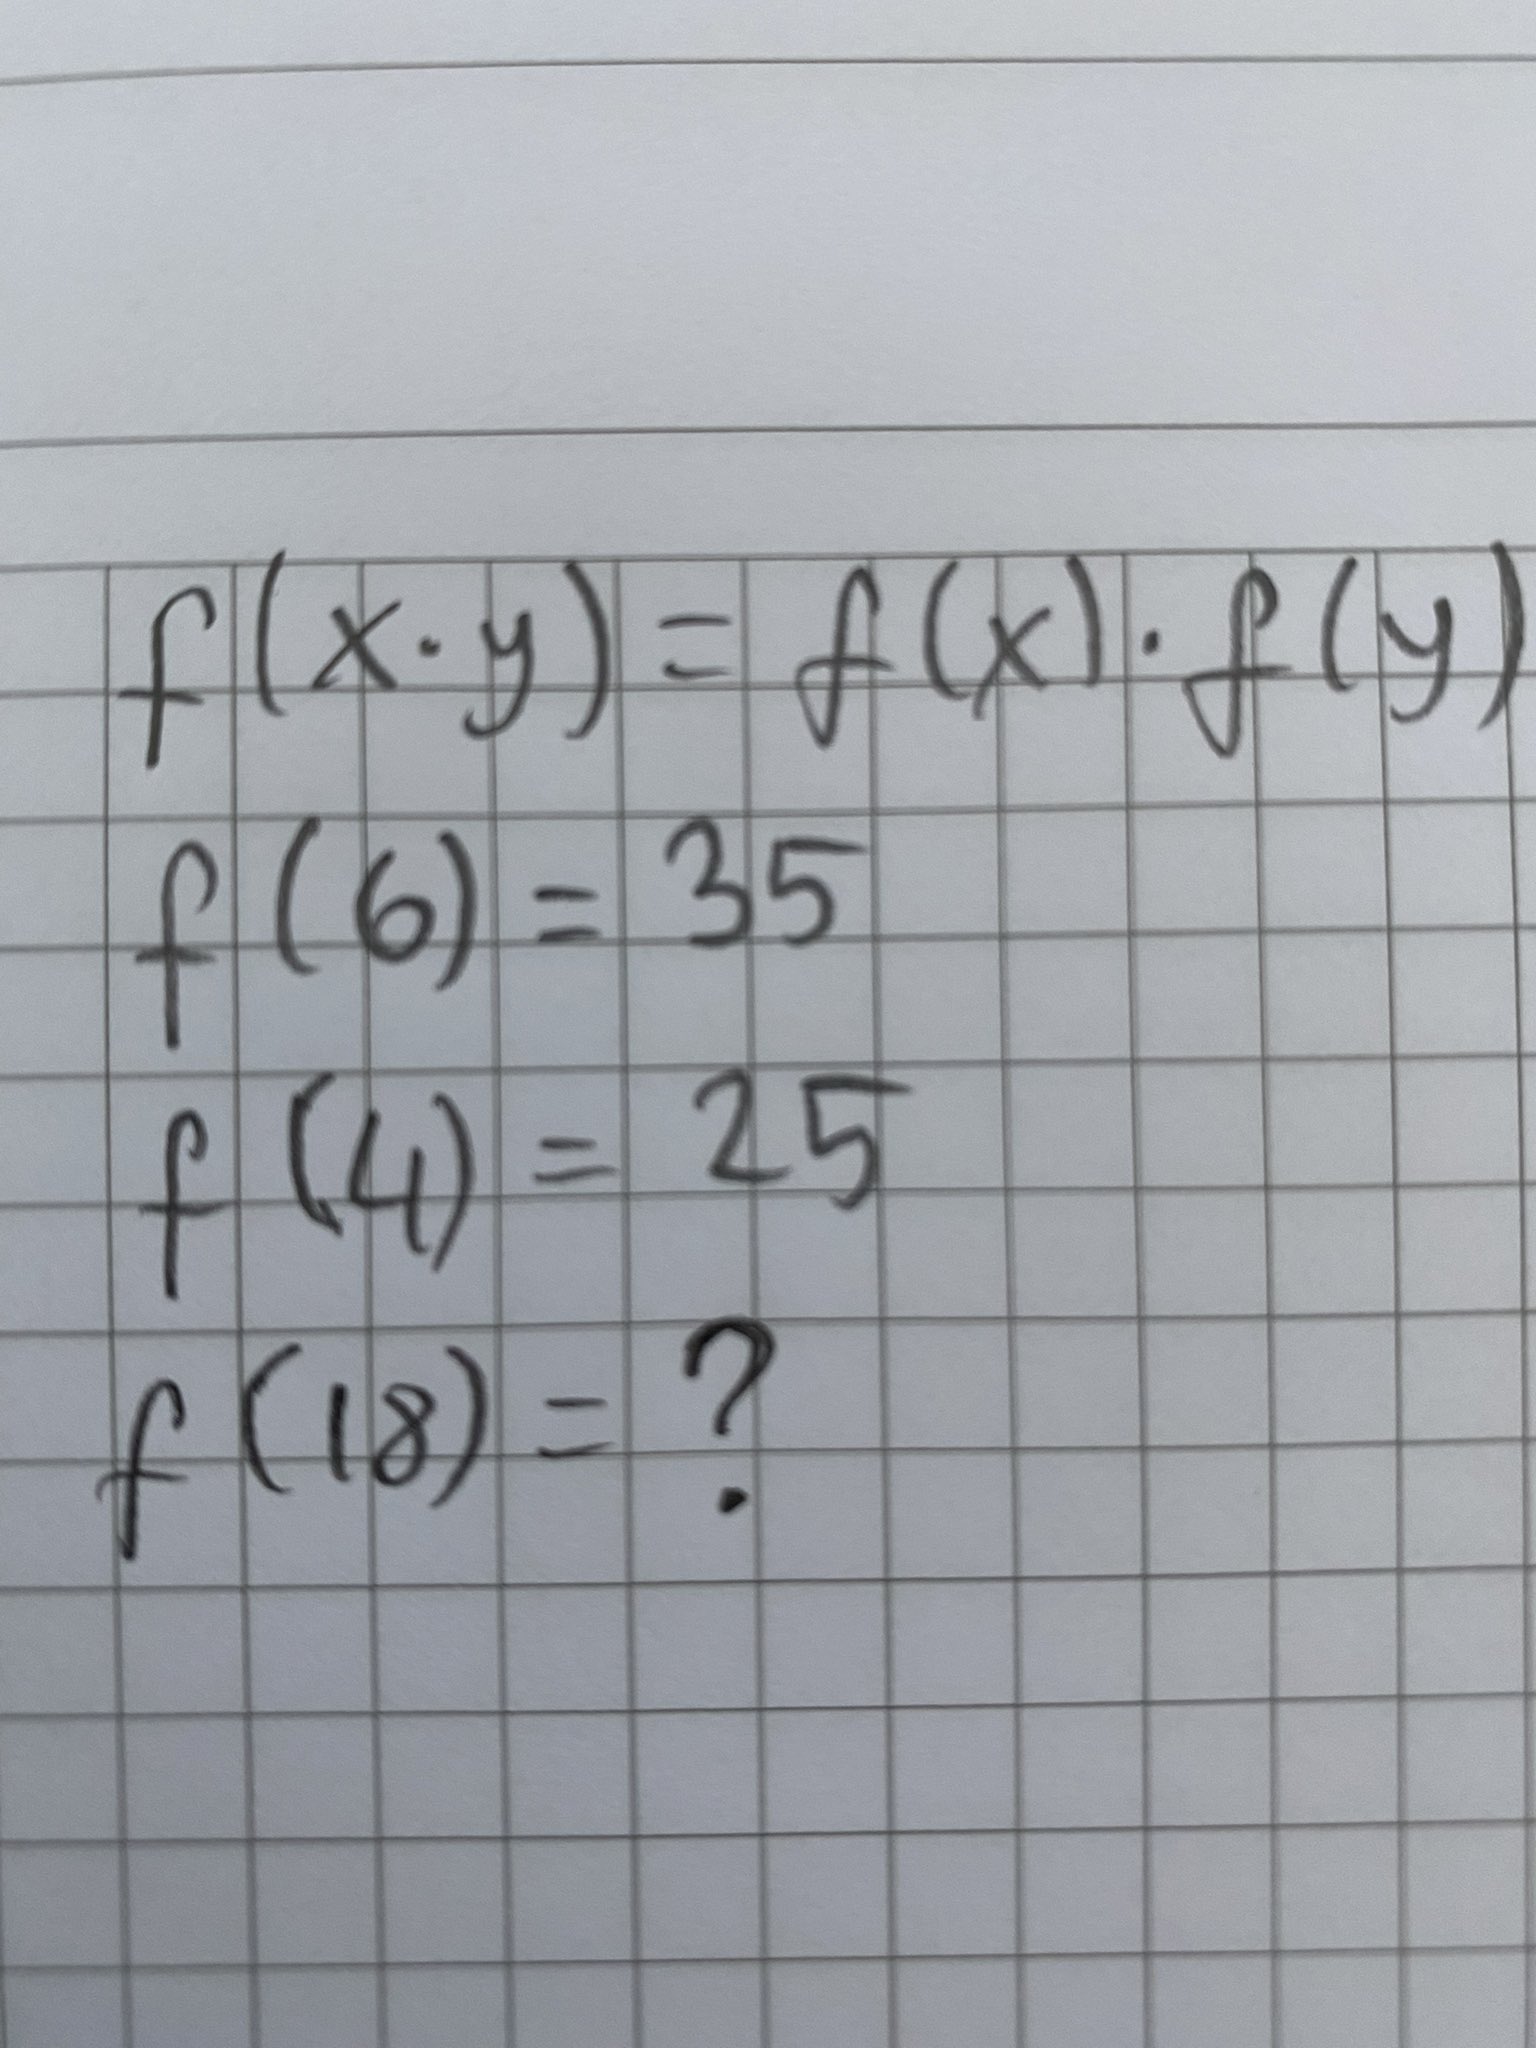 f(x·y) = f(x)·f(y)
f(6) = 35
f(4) = 25
f(18) = ?